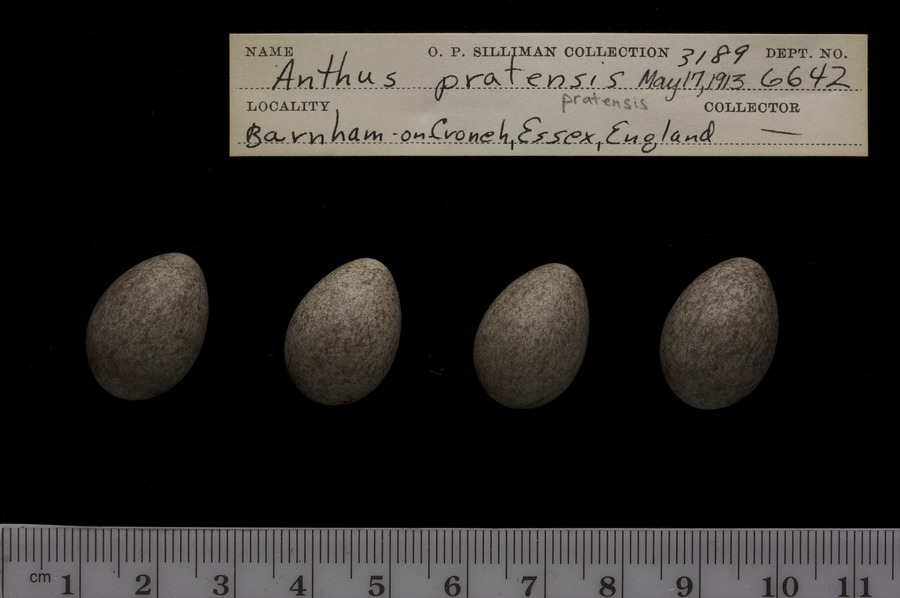 NAME O. P. SILLIMAN COLLECTION 3189 DEPT. NO.
Anthus pratensis May 17, 1913 6642
pratensis
LOCALITY COLLECTOR
Barnham-on Croneh, Essex, England —
cm 1 2 3 4 5 6 7 8 9 10 11